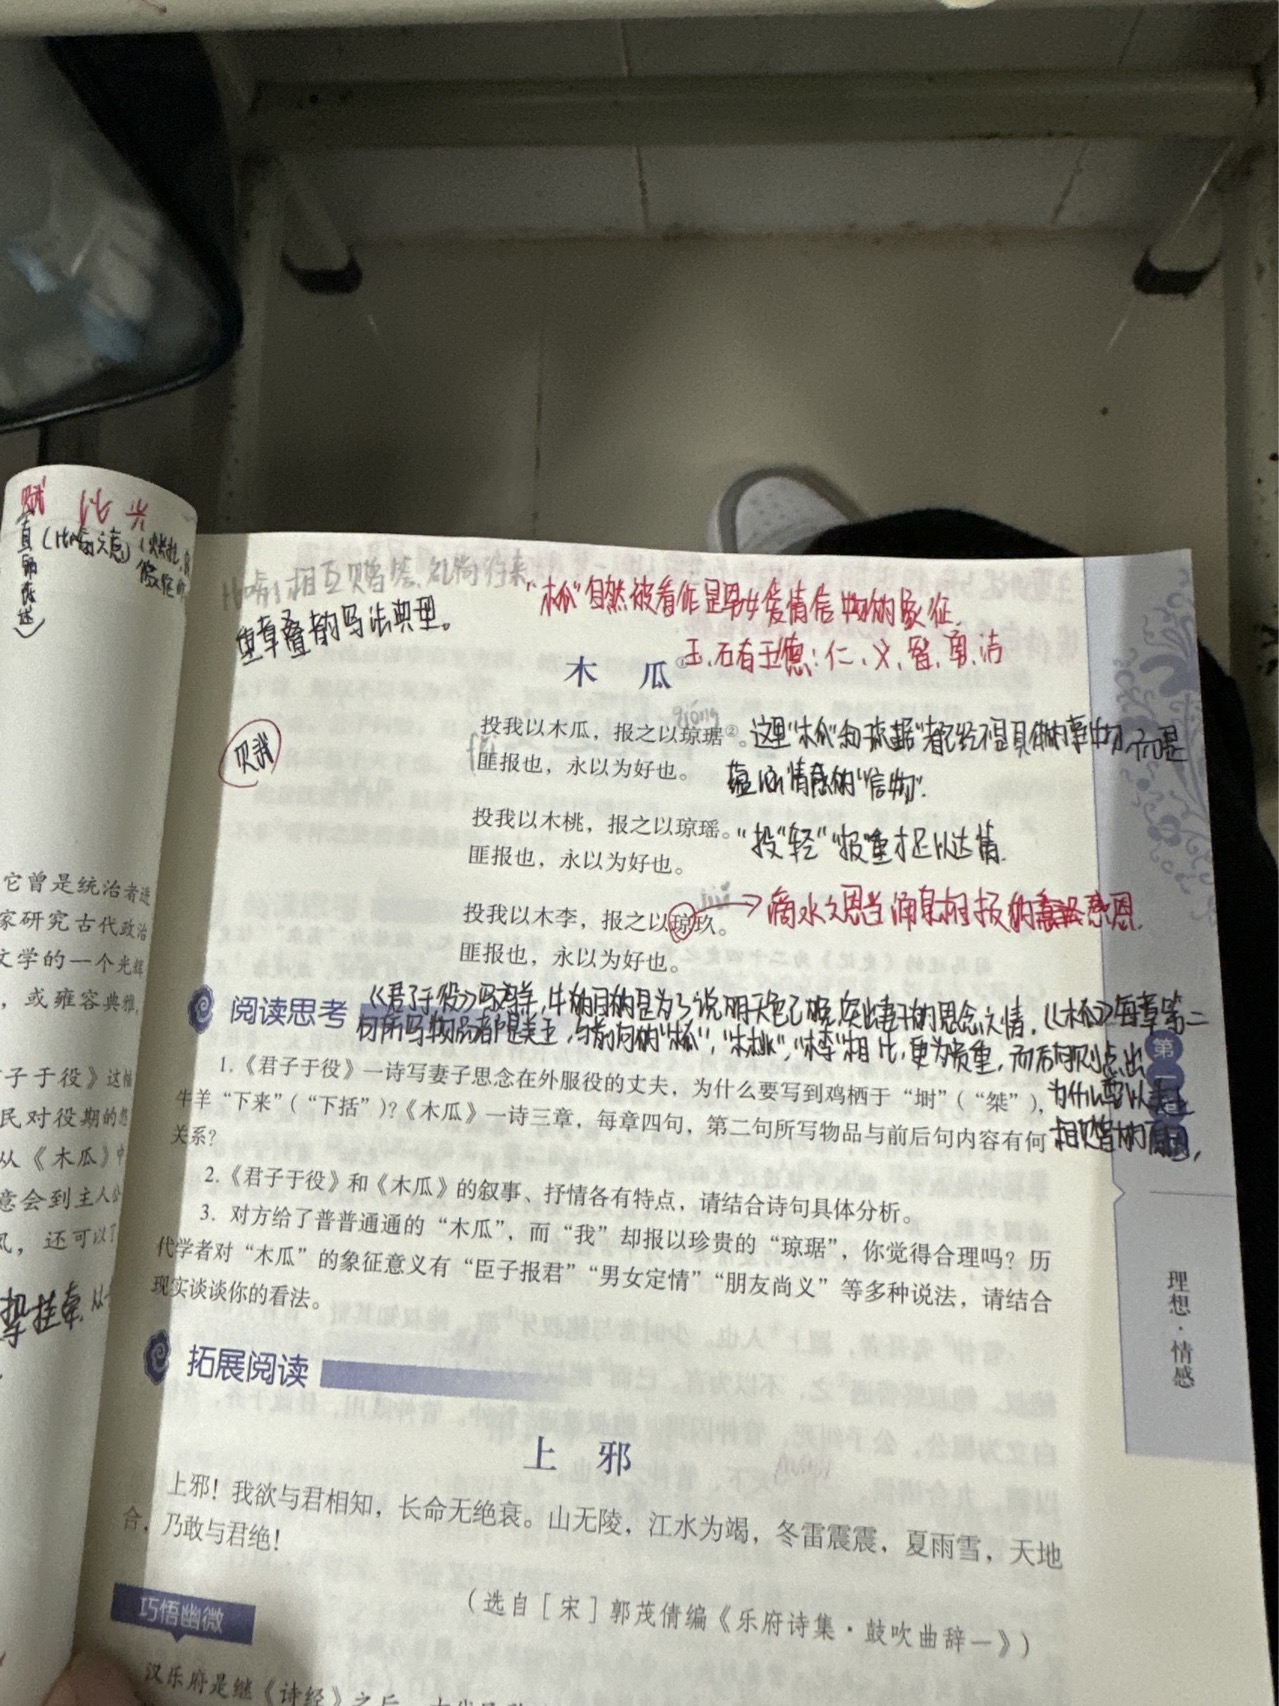 赋 比 兴
直
陈
述）
相互赠答、礼尚往来
重章叠
的写法典型。
"木瓜"自然被看作是男女爱情信物的象征.
玉、石有五德：仁、义、智、勇、洁
木 瓜①
赋
qióng
投我以木瓜，报之以琼琚②。
匪报也，永以为好也。
这里"木瓜"和"琼琚"都已经不是具体的事物 而是
蕴涵情感的"信物".
投我以木桃，报之以琼瑶。
匪报也，永以为好也。
"投"轻"报"重才足以达情.
jiǔ
投我以木李，报之以琼玖。
匪报也，永以为好也。
滴水之恩当涌泉相报的 感恩.
阅读思考
《君子于役》写鸡羊,牛的目的是为了说明天色已晚,突出妻子的思念之情.《木瓜》每章第二
句所写物品都是美玉,与前句的"木瓜","木桃","木李"相比,更为贵重,而后句则点出
为什么要以美玉
相赠的原因,
1.《君子于役》一诗写妻子思念在外服役的丈夫，为什么要写到鸡栖于"埘"（"桀"），
牛羊"下来"（"下括"）？《木瓜》一诗三章，每章四句，第二句所写物品与前后句内容有何
关系？
2.《君子于役》和《木瓜》的叙事、抒情各有特点，请结合诗句具体分析。
3. 对方给了普普通通的"木瓜"，而"我"却报以珍贵的"琼琚"，你觉得合理吗？历
代学者对"木瓜"的象征意义有"臣子报君""男女定情""朋友尚义"等多种说法，请结合
现实谈谈你的看法。
拓展阅读
上 邪
上邪！我欲与君相知，长命无绝衰。山无陵，江水为竭，冬雷震震，夏雨雪，天地
合，乃敢与君绝！
（选自［宋］郭茂倩编《乐府诗集·鼓吹曲辞一》）
巧悟幽微
汉乐府是继《诗经》之后，
第
一
理想·情感
它曾是统治者进
家研究古代政治
文学的一个光辉
，或雍容典雅，
子于役》这
民对役期的怨
从《木瓜》中
意会到主人公
风，还可以了